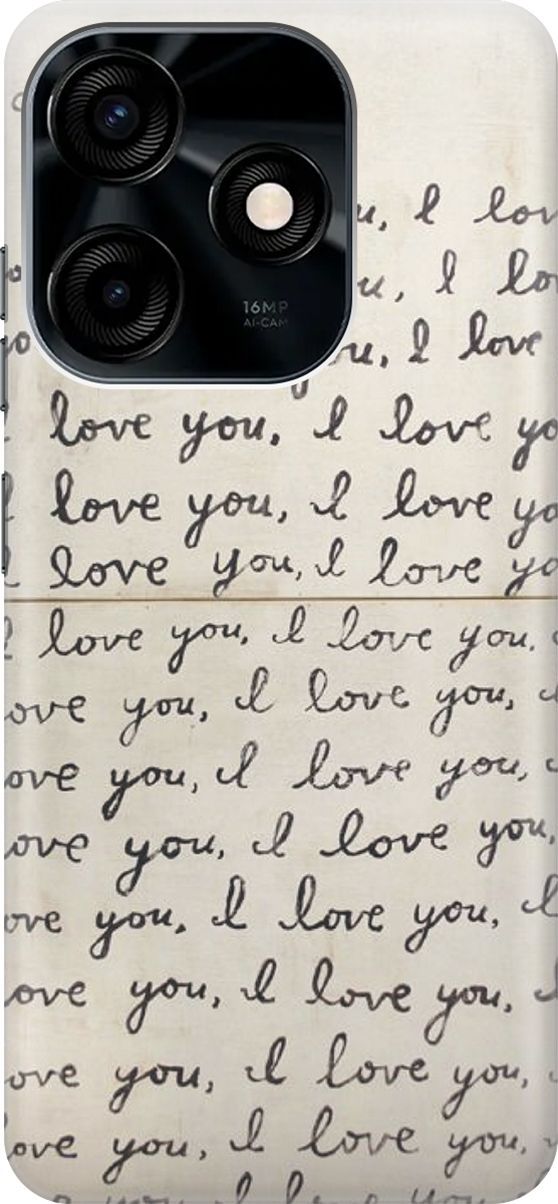 16MP
AI-CAM
u, I lov
u, I lo
yo ou, I love
I love you, I love yo
I love you, I love yo
I love you, I love yo
I love you, I love you,
ove you, I love you, I
ove you, I love you,
ove you, I love you,
ove you, I love you, I
ove you, I love you, I
ove you, I love you,
ove you, I love you,
you I love you